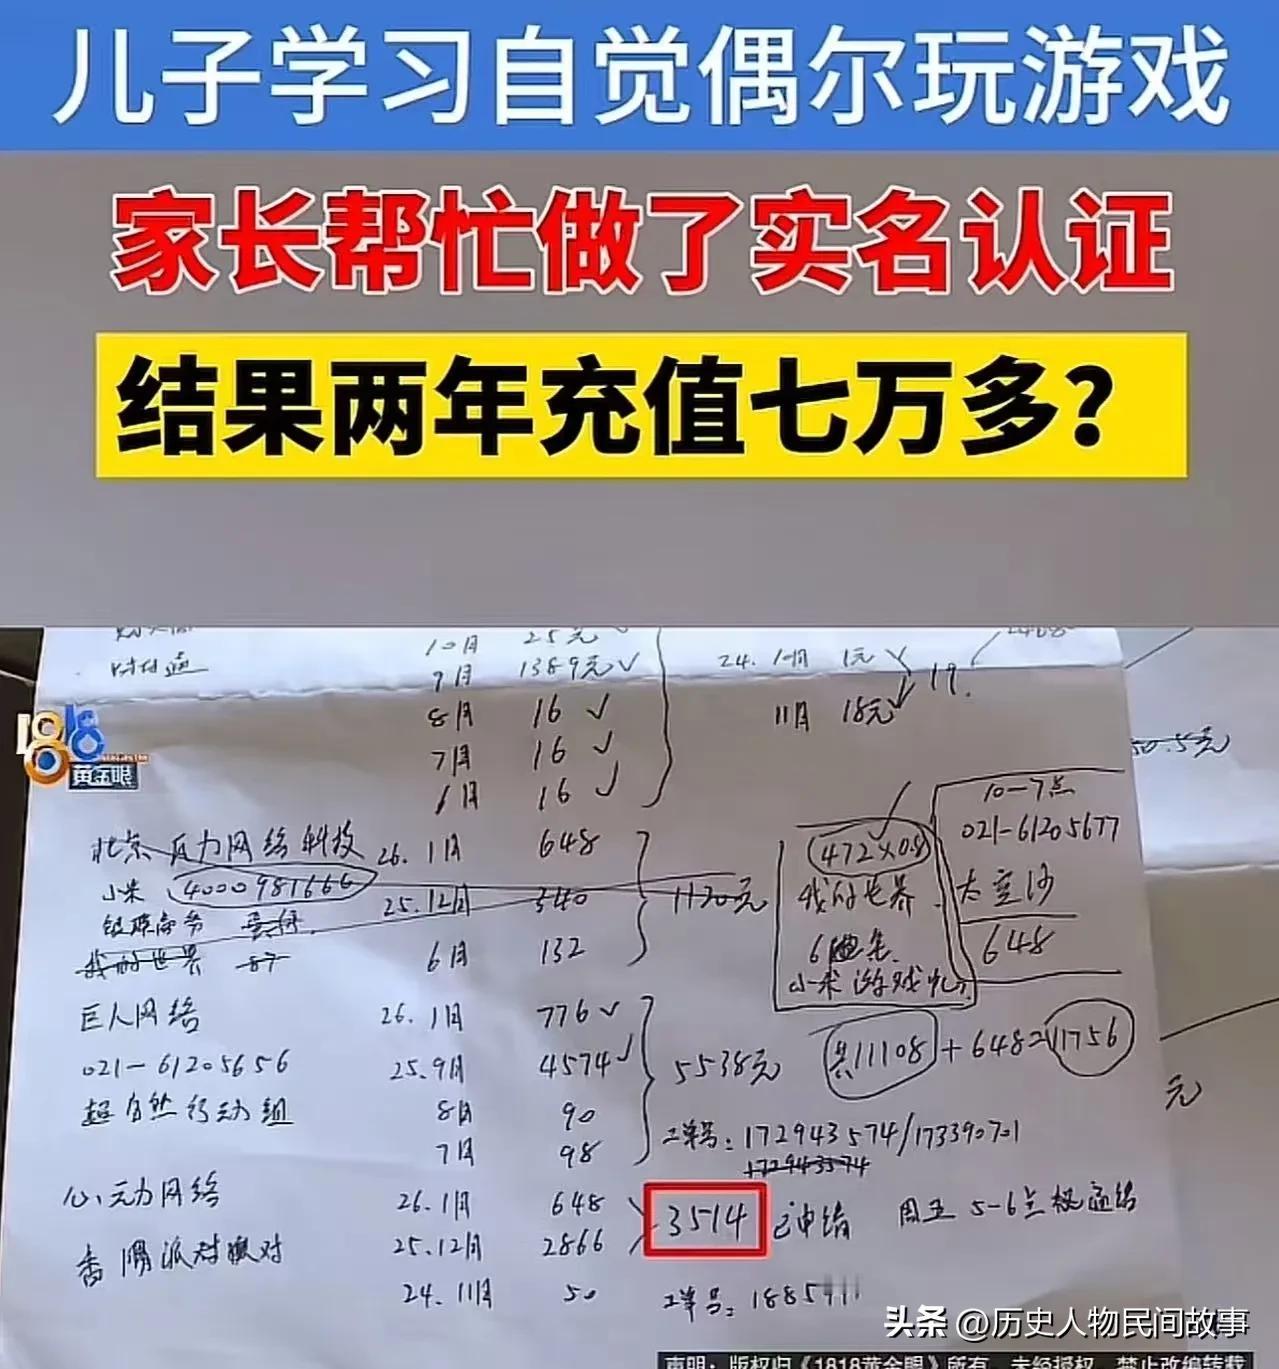 儿子学习自觉偶尔玩游戏
家长帮忙做了实名认证
结果两年充值七万多？
10月 25元
9月 1389元✓
8月 16 ✓
7月 16 ✓
6月 16 ✓
24. 10月 1元
11月 18元
19.
50.5元
1818
黄金眼
北京 瓦力网络科技 26.1月 648
小米 4000981666 25.12月 340
银联商务
我的世界 87 6月 132
1120元
472×0.8
我的世界
小米游戏
10-7点
021-61205677
太空沙
648
巨人网络 26.1月 776✓
021-61205656 25.9月 4574✓
超自然行动组 8月 90
7月 98
5538元
共11108+648=11756
元
工单号：172943574/173390701
172943574
心元力网络 26.1月 648
香肠派对派对 25.12月 2866
24.11月 50
3514 已申请
周五 5-6点
工单号：
头条 @历史人物民间故事
声明：版权归《1818黄金眼》所有，未经授权，禁止改编转载